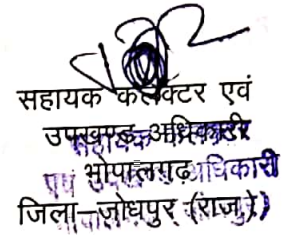 सहायक कलेक्टर एवं
उपखण्ड अधिकारी
भोपालगढ़
जिला-जोधपुर (राज.)